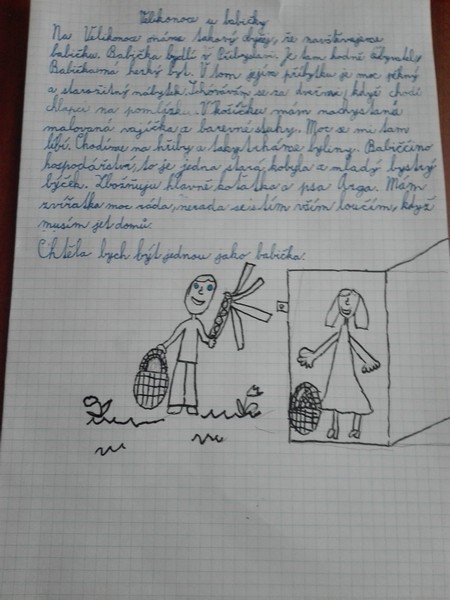 Velikonoce u babičky
Na Velikonoce máme takový zvyk, že navštěvujeme
babičku. Babička bydlí v Přibyslavi. Je tam hodně obyvatel.
Babička má hezký byt. V tom jejím příbytku je moc pěkný
a starožitný nábytek. Schovávám se za dveřmi, když chodí
chlapci na pomlázku. V košíčku mám nachystaná
malovaná vajíčka a barevné stuhy. Moc se mi tam
líbí. Chodíme na hřiby a taky trháme byliny. Babiččino
hospodářství, to je jedna stará kobyla a mladý bystrý
býček. Zbožňuju hlavně koťátka a psa Arga. Mám
zvířátka moc ráda, nerada se s tím vším loučím, když
musím jet domů.
Chtěla bych být jednou jako babička.